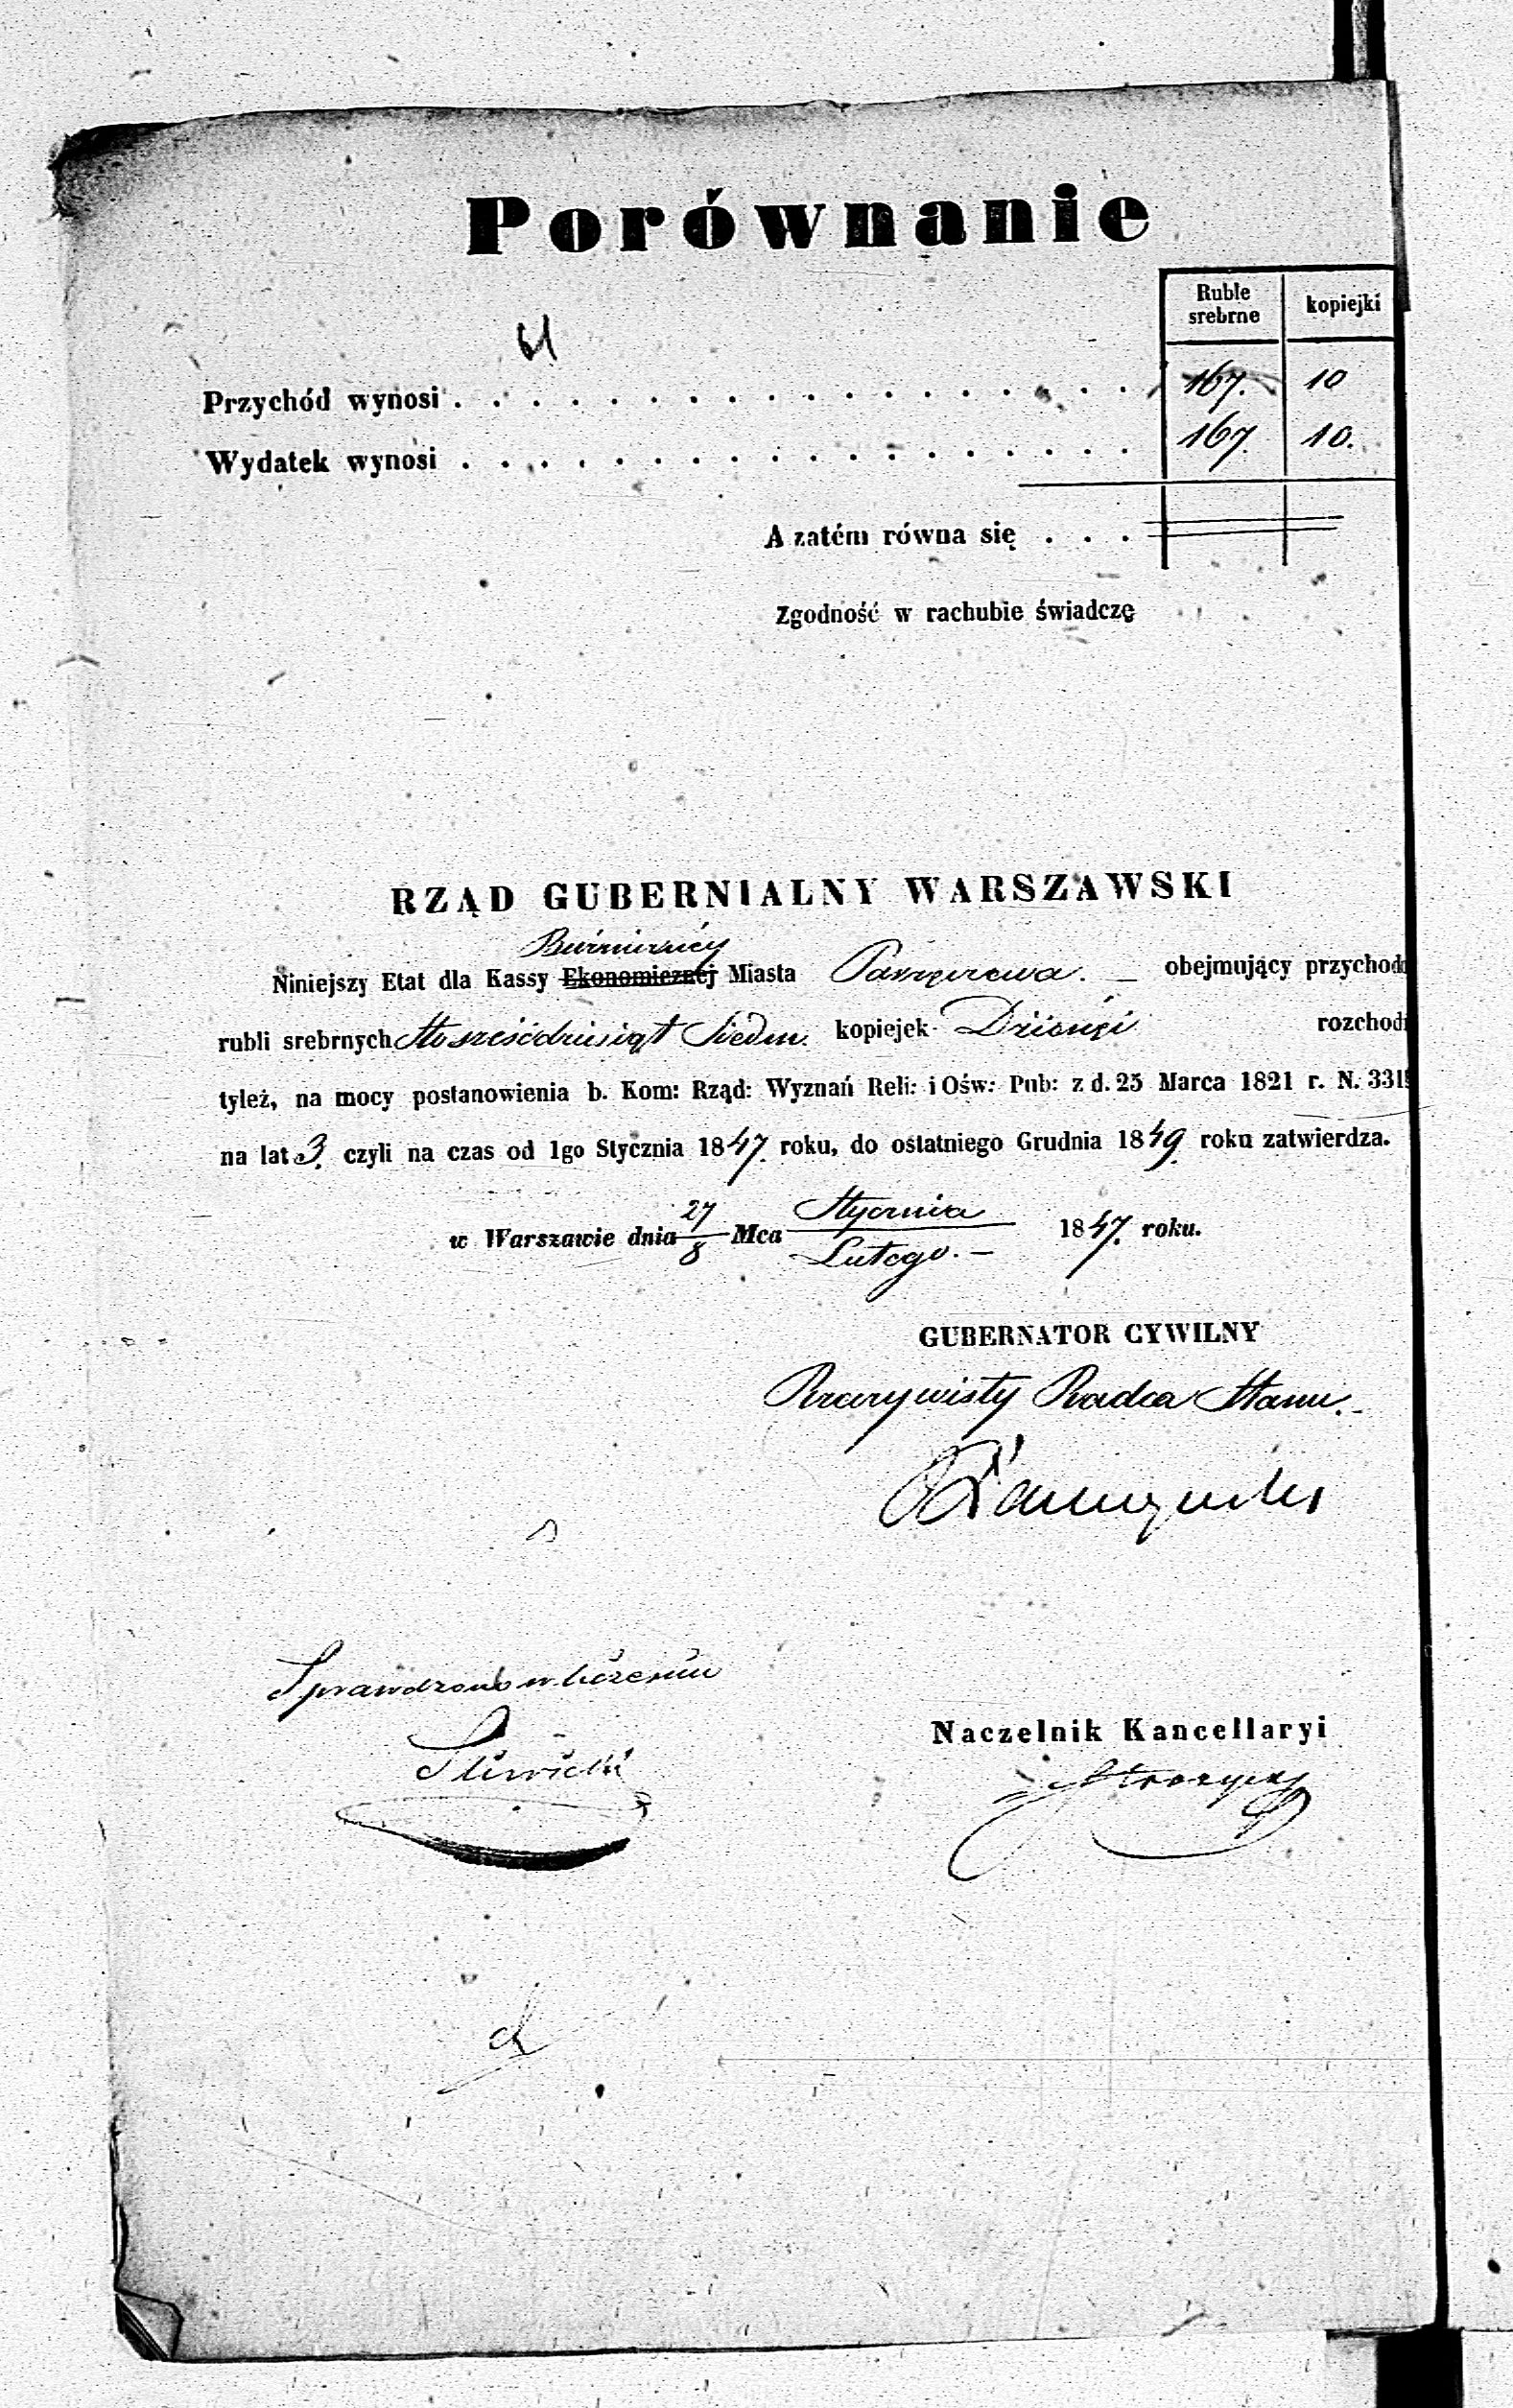 Porównanie
Ruble srebrne kopiejki
Przychód wynosi . . . . . . . . . . . . . . . . . . 167. 10
Wydatek wynosi . . . . . . . . . . . . . . . . . . 167. 10.
A zatém równa się . . .
Zgodność w rachubie świadczę
RZĄD GUBERNIALNY WARSZAWSKI
Bużniczney
Niniejszy Etat dla Kassy Ekonomicznej Miasta Parzęczewa. — obejmujący przychodu
rubli srebrnych Sto sześćdziesiąt Siedm. kopiejek Dziesięć rozchodu
tyleż, na mocy postanowienia b. Kom: Rząd: Wyznań Reli: i Ośw: Pub: z d. 25 Marca 1821 r. N. 331
na lat 3. czyli na czas od 1go Stycznia 1847. roku, do ostatniego Grudnia 1849. roku zatwierdza.
w Warszawie dnia 27/8 Mca Stycznia/Lutego. — 1847. roku.
GUBERNATOR CYWILNY
Rzeczywisty Radca Stanu.
Sprawdzono w liczeniu
Naczelnik Kancellaryi